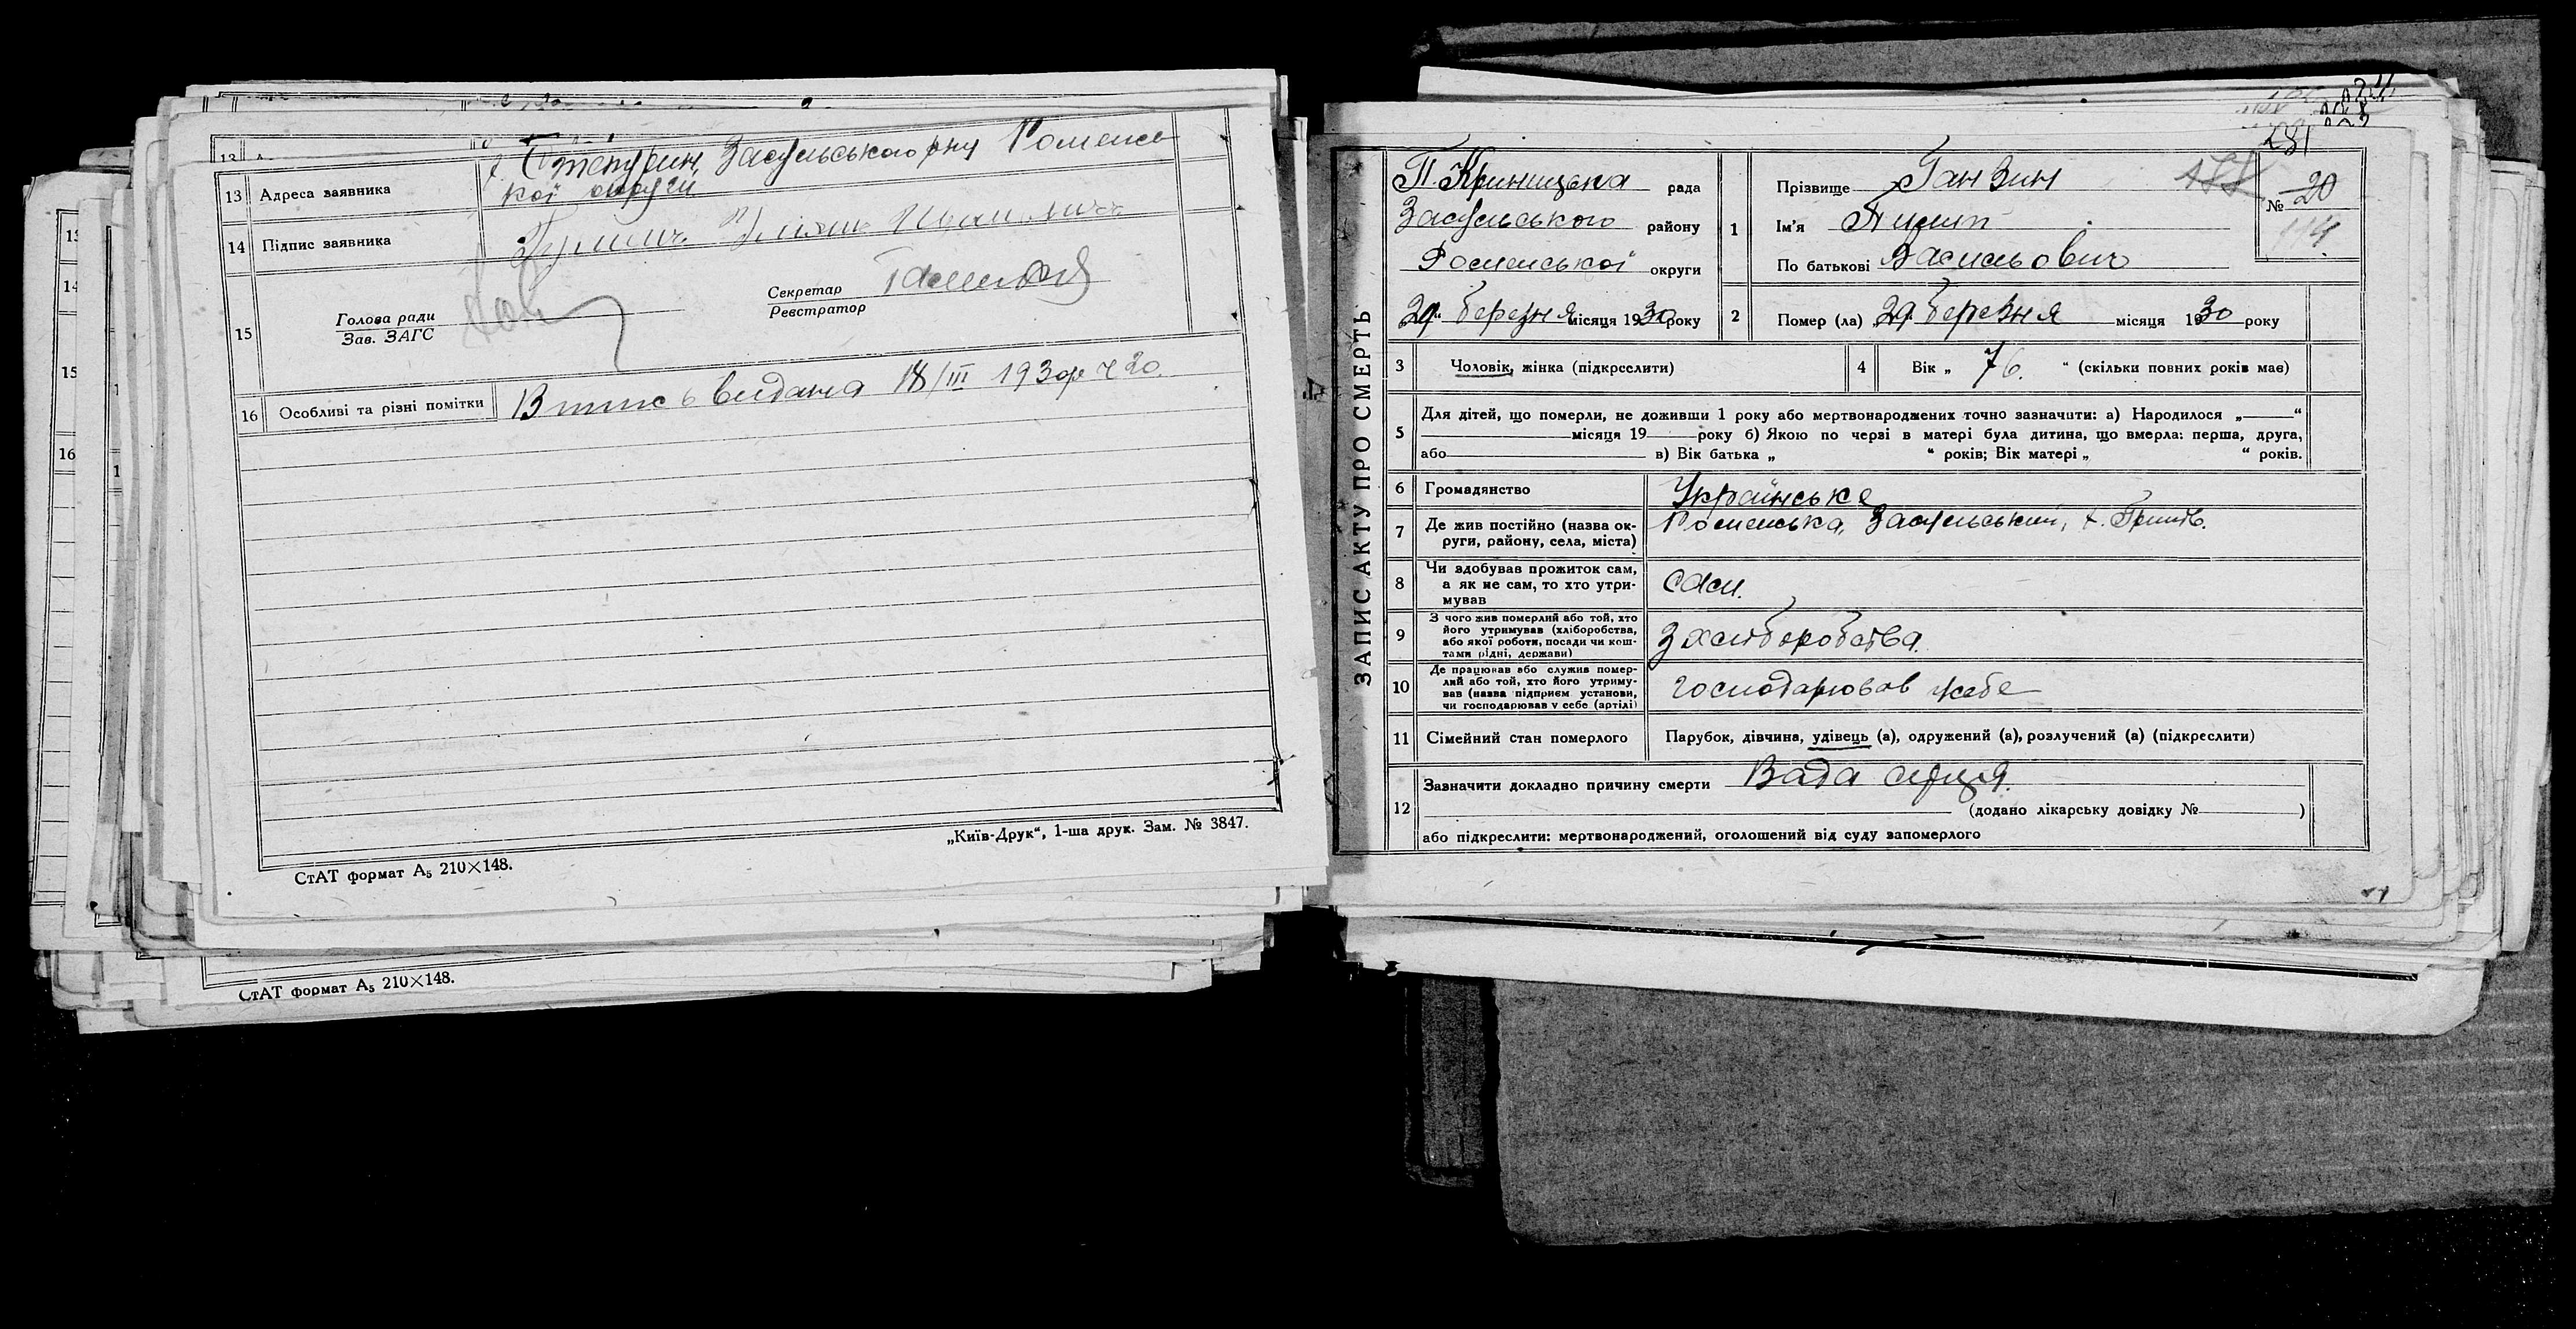 13 Адреса заявника
Засульського р-ну Роменсь
кої округи
14 Підпис заявника
15
Голова ради
Зав. ЗАГС
Секретар
Реєстратор
16 Особливі та різні помітки Витпис видана 18/III 1930р Ч 20.
„Київ-Друк“, 1-ша друк. Зам. № 3847.
СтАТ формат А₅ 210×148.
СтАТ формат А₅ 210×148.
281
ЗАПИС АКТУ ПРО СМЕРТЬ
П. Криницька рада
Засульського району
Роменської округи
29 березня місяця 1930 року
1 Прізвище Ганзин
Ім'я Пилип
По батькові Васильович
№ 20
114
2 Помер (ла) „29 березня місяця 1930 року
3 Чоловік, жінка (підкреслити)
4 Вік „ 76. “ (скільки повних років має)
5 Для дітей, що померли, не доживши 1 року або мертвонароджених точно зазначити: а) Народилося „ “
місяця 19 року б) Якою по черзі в матері була дитина, що вмерла: перша, друга,
або в) Вік батька „ “ років; Вік матері „ “ років.
6 Громадянство Українське
7 Де жив постійно (назва ок-
руги, району, села, міста) Роменська, Засульський, х.
8 Чи здобував прожиток сам,
а як не сам, то хто утри-
мував сам.
9 З чого жив померлий або той, хто
його утримував (хліборобства,
або якої роботи, посади чи кош-
тами рідні, держави) З хліборобства.
10 Де працював або служив помер-
лий або той, хто його утриму-
вав (назва підприєм установи,
чи господарював у себе (артілі) господарював у себе
11 Сімейний стан померлого Парубок, дівчина, удівець (а), одружений (а), розлучений (а) (підкреслити)
12 Зазначити докладно причину смерти Вада серця.
(додано лікарську довідку № )
або підкреслити: мертвонароджений, оголошений від суду запомерлого